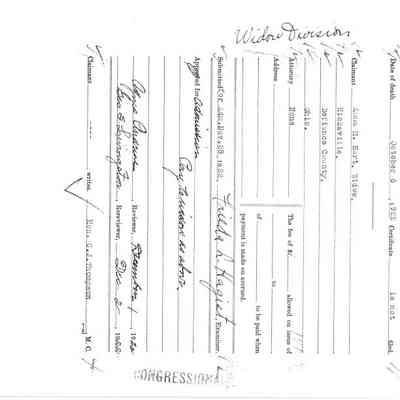 Widow Division
Date of death October 6, 1922 Certificate is not filed.
Claimant Anna M. Hart, Widow,
Hicksville,
Defiance County,
Ohio.
Attorney None The fee of $ allowed on issue of
Address to
of to be paid when
payment is made on accrued.
Submitted for Adm. Nov. 29, 1922, Examiner.
Approved for admission
Pay to widow as above.
Reviewer, December 1, 1922
Reviewer, Dec 2, 1922
Claimant writes.
Hon. C. J. Thompson M. C.
CONGRESSIONAL